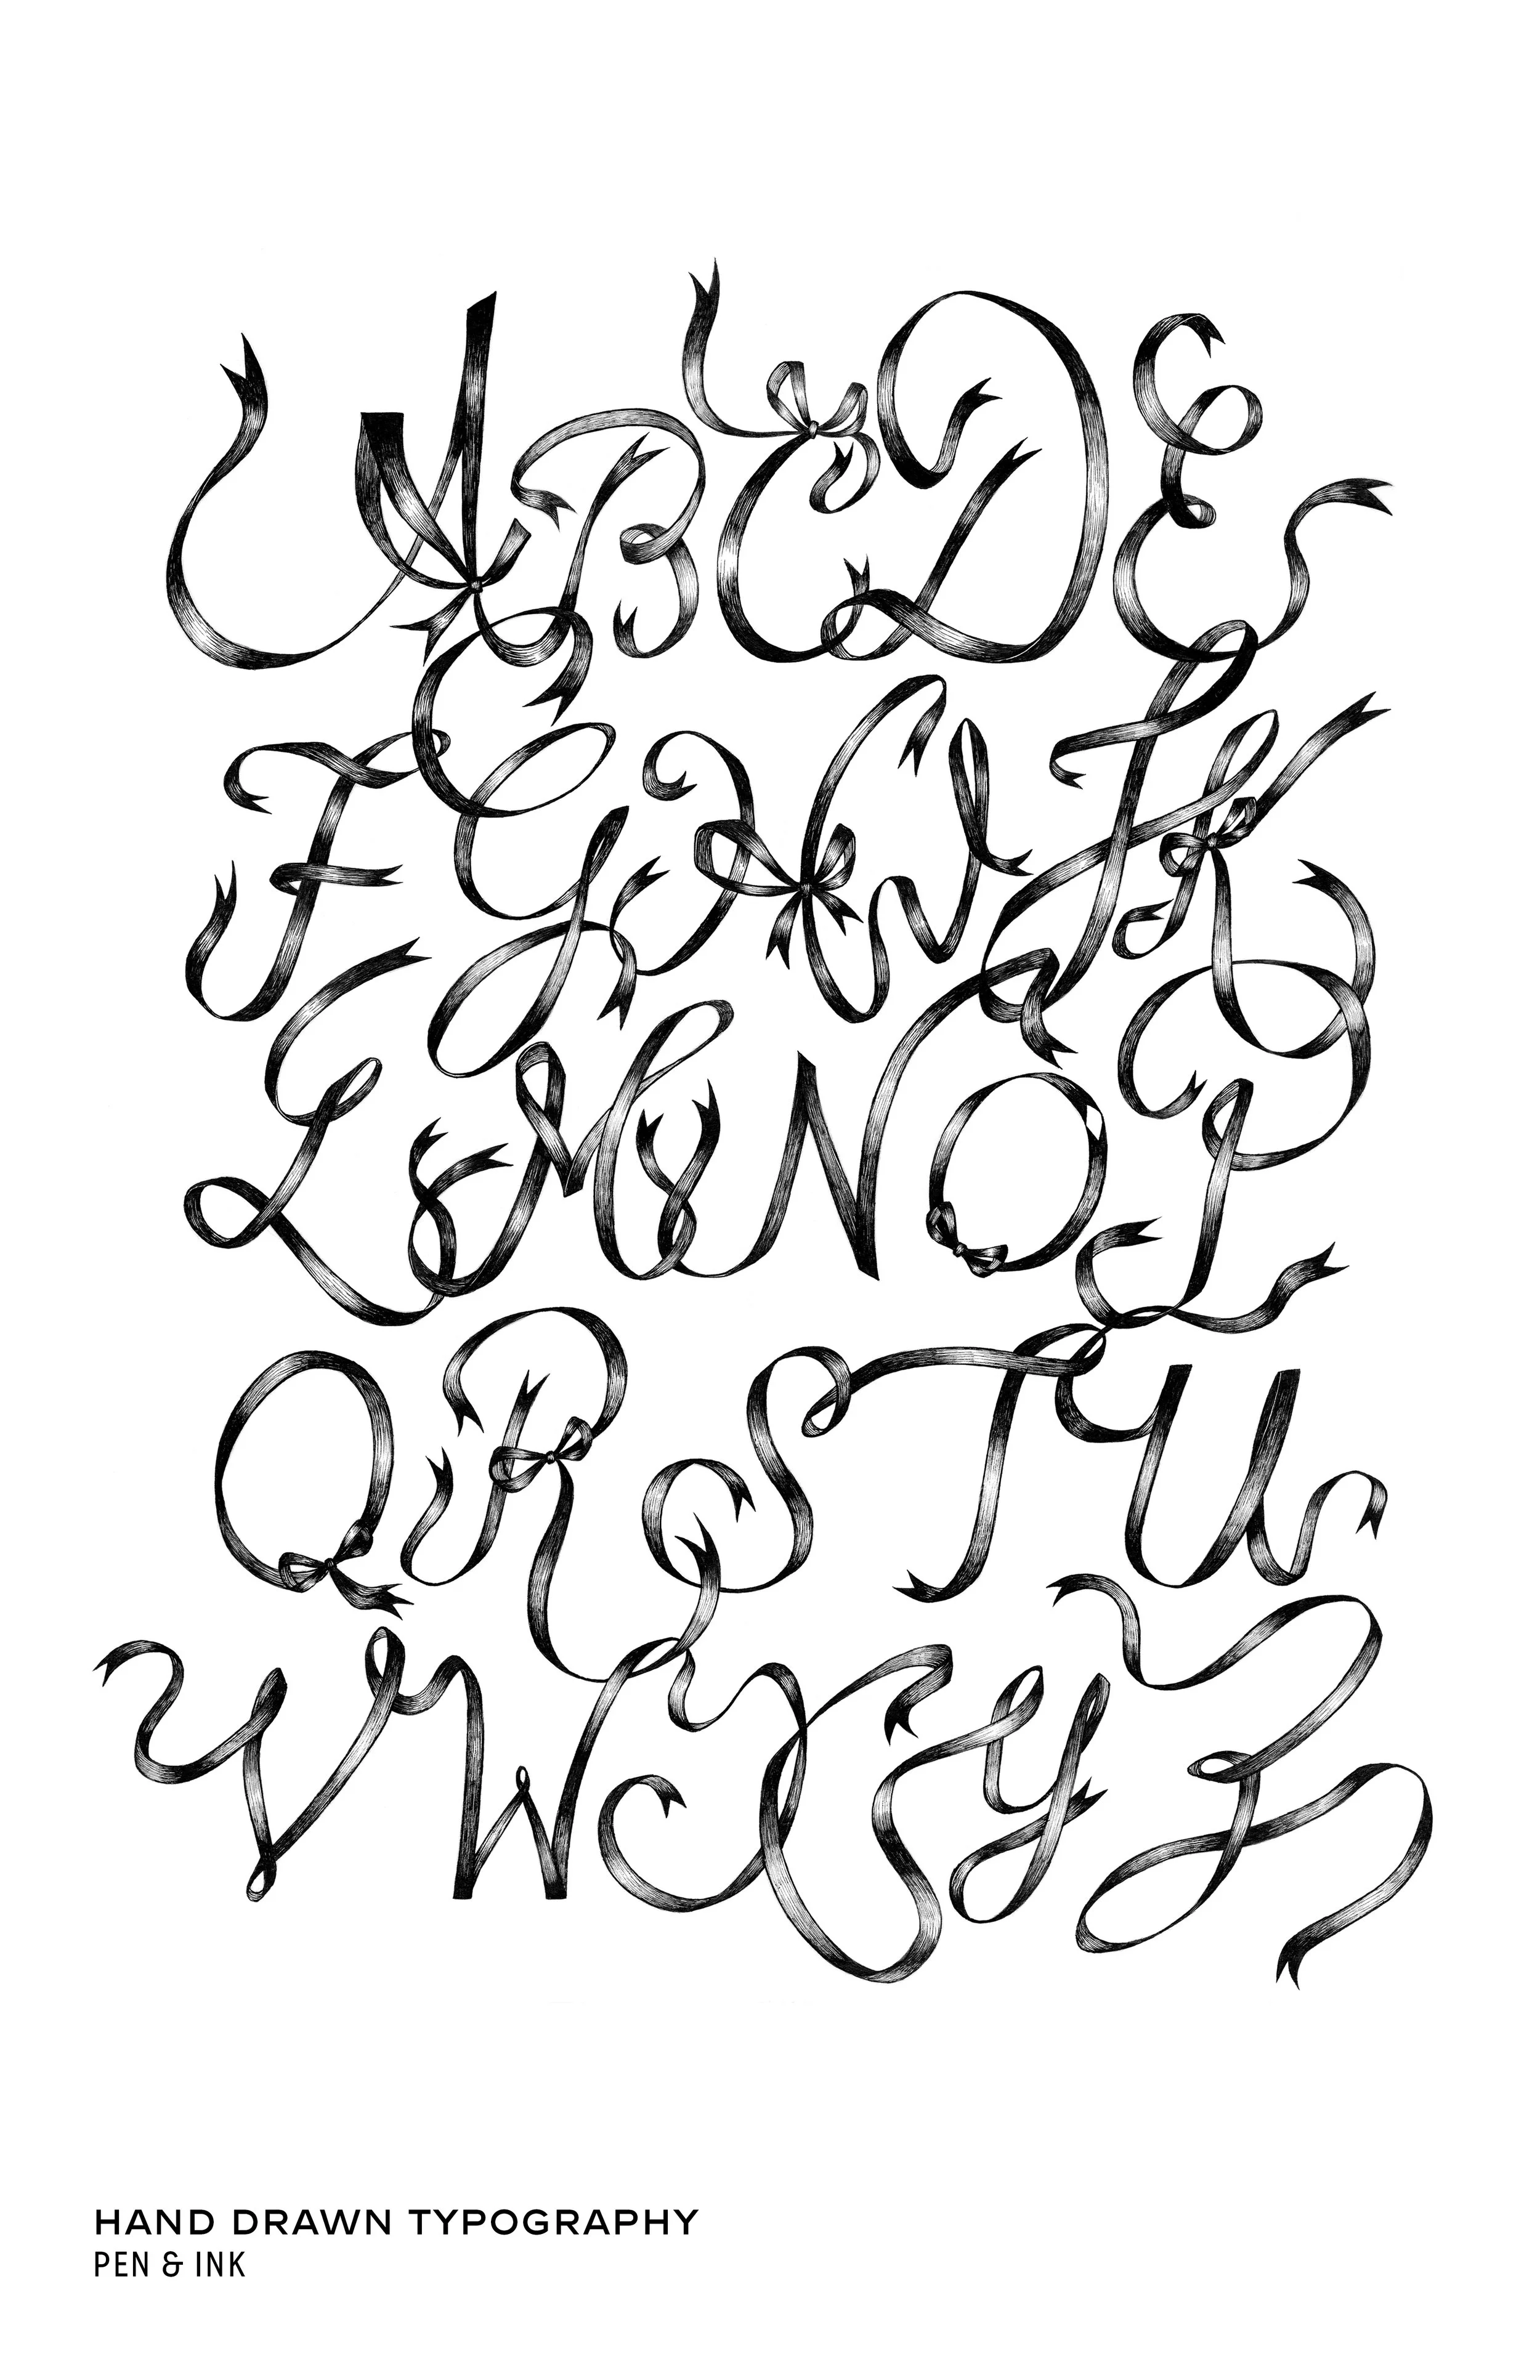 ABCDE
FGHIJK
LMNOP
QRSTU
VWXYZ
HAND DRAWN TYPOGRAPHY
PEN & INK